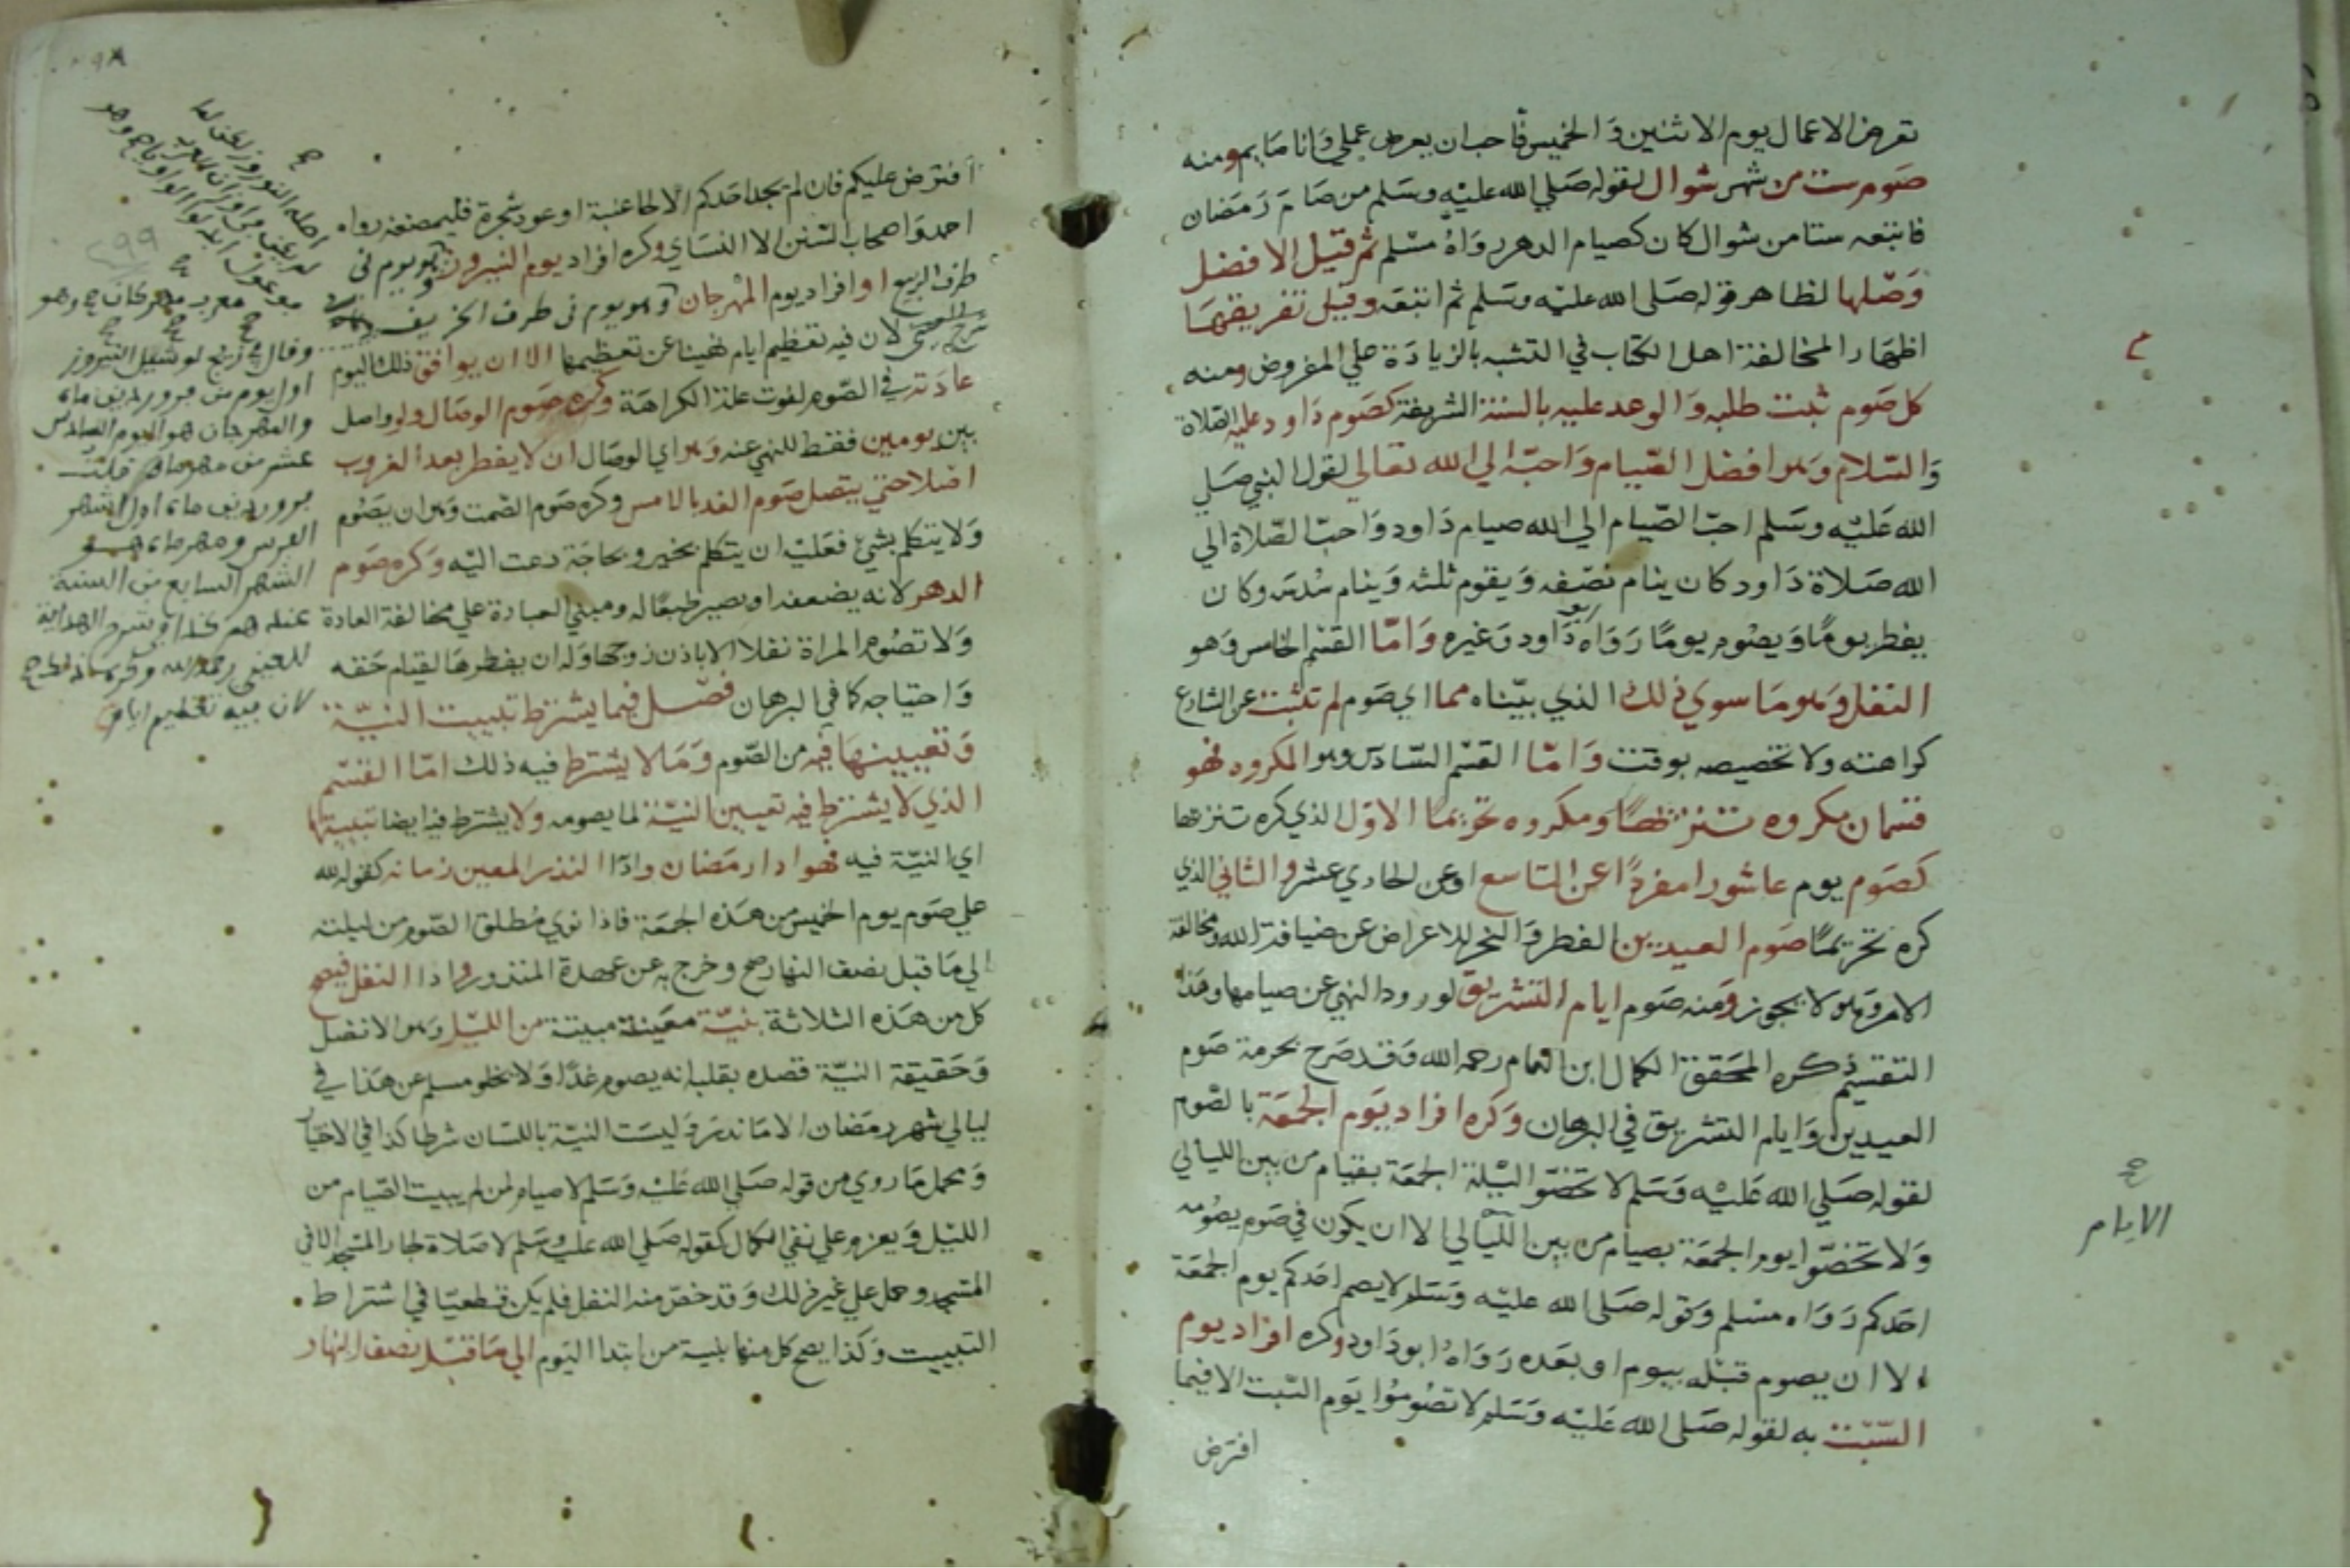 تعرض الاعمال يوم الاثنين والخميس فاحب ان يعرض عملي وانا صايم ومنه
صوم ست من شهر شوال لقوله صلي الله عليه وسلم من صام رمضان
فاتبعه ستا من شوال كان كصيام الدهر رواه مسلم ثم قيل الافضل
وصلها لظاهر قوله صلى الله عليه وسلم ثم اتبعه وقيل تفريقها
اظهار المخالفة اهل الكتاب في التشبه بالزيادة علي المفروض ومنه
كل صوم ثبت طلبه والوعد عليه بالسنة الشريفة كصوم داود عليه الصلاة
والسلام وهو افضل الصيام واحبه الي الله تعالي لقول النبي صلي
الله عليه وسلم احب الصيام الي الله صيام داود واحب الصلاة الي
الله صلاة داود كان ينام نصفه ويقوم ثلثه وينام سدسه وكان
يفطر يوما ويصوم يوما رواه ابو داود وغيره واما القسم الخامس وهو
النفل وهو ما سوي ذلك الذي بيناه مما اي صوم لم تثبت عن الشارع
كراهته ولا تخصيصه بوقت واما القسم السادس وهو المكروه فهو
قسمان مكروه تنزيها ومكروه تحريما الاول الذي كره تنزيها
كصوم يوم عاشورا مفردا عن التاسع او عن الحادي عشر والثاني الذي
كره تحريما صوم العيدين الفطر والنحر للاعراض عن ضيافة الله ومخالفة
الامر وهو لا يجوز ومنه صوم ايام التشريق لورود النهي عن صيامها وهذا
التقسيم ذكره المحقق الكمال ابن الهمام رحمه الله وقد صرح بحرمة صوم
العيدين وايام التشريق في البرهان وكره افراد يوم الجمعة بالصوم
لقوله صلي الله عليه وسلم لا تختصوا ليلة الجمعة بقيام من بين الليالي
ولا تخصوا يوم الجمعة بصيام من بين الليالي الا ان يكون في صوم يصومه
احدكم رواه مسلم وقوله صلى الله عليه وسلم لا يصم احدكم يوم الجمعة
الا ان يصوم قبله بيوم او بعده رواه ابو داود وكره افراد يوم
السبت به لقوله صلى الله عليه وسلم لا تصوموا يوم السبت الا فيما
افترض
الايام
افترض عليكم فان لم يجد احدكم الا لحا عنبة او عود شجرة فليمضغه رواه
احمد واصحاب السنن الا النساي وكره افراد يوم النيروز وهو يوم في
طرف الربيع او افراد يوم المهرجان وهو يوم في طرف الخريف
لان فيه تعظيم ايام نهينا عن تعظيمها الا ان يوافق ذلك اليوم
عادته في الصوم لفوت علة الكراهة وكره صوم الوصال ولو واصل
بين يومين فقط للنهي عنه وهو اي الوصال ان لا يفطر بعد الغروب
اصلا حتي يتصل صوم الغد بالامس وكره صوم الصمت وهو ان يصوم
ولا يتكلم بشيء فعليه ان يتكلم بخير وبحاجة دعت اليه وكره صوم
الدهر لانه يضعفه او يصير طبعا له ومبني العبادة علي مخالفة العادة
ولا تصوم المراة نفلا الا باذن زوجها وله ان يفطرها لقيام حقه
واحتياجه كما في البرهان فصل فيما يشترط تبييت النية
وتعيينها فيه من الصوم وما لا يشترط فيه ذلك اما القسم
الذي لا يشترط فيه تعيين النية لما يصومه ولا يشترط فيه ايضا تبييتها
اي النية فيه فهو ادا رمضان وادا النذر المعين زمانه كقوله لله
علي صوم يوم الخميس من هذه الجمعة فاذا نوي مطلق الصوم من ليلته
الي ما قبل نصف النهار صح وخرج به عن عهدة المنذور وادا النفل فيصح
كل من هذه الثلاثة بنية معينة مبيتة من الليل وهو الافضل
وحقيقة النية قصده بقلبه انه يصوم غدا ولا يخلو مسلم عن هذا في
ليالي شهر رمضان الا ما ندر وليست النية باللسان شرطا كذا في الاختيار
ويحمل ما روي من قوله صلي الله عليه وسلم لا صيام لمن لم يبيت الصيام من
الليل ويعزم علي نفي الكمال كقوله صلي الله عليه وسلم لا صلاة لجار المسجد الا في
المسجد وحمل علي غير ذلك وقد خص منه النفل فلم يكن قطعيا في اشتراط
التبييت وكذا يصح كل منها بنية من ابتدا اليوم الي ما قبل نصف النهار
اصله النوروز
معرب مهركان وهو
اول يوم من
والمهرجان هو اليوم السادس
عشر من قلت
اول اشهر
الفرس
الشهر السابع من السنة
عندهم كذا في شرح الهداية
للعيني رحمه الله
لان فيه تعظيم ايام
٢٩٩